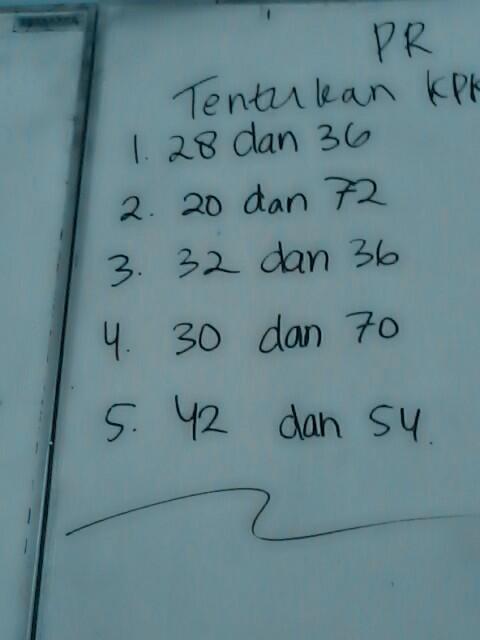 PR
Tentukan KPK
1. 28 dan 36
2. 20 dan 72
3. 32 dan 36
4. 30 dan 70
5. 42 dan 54.